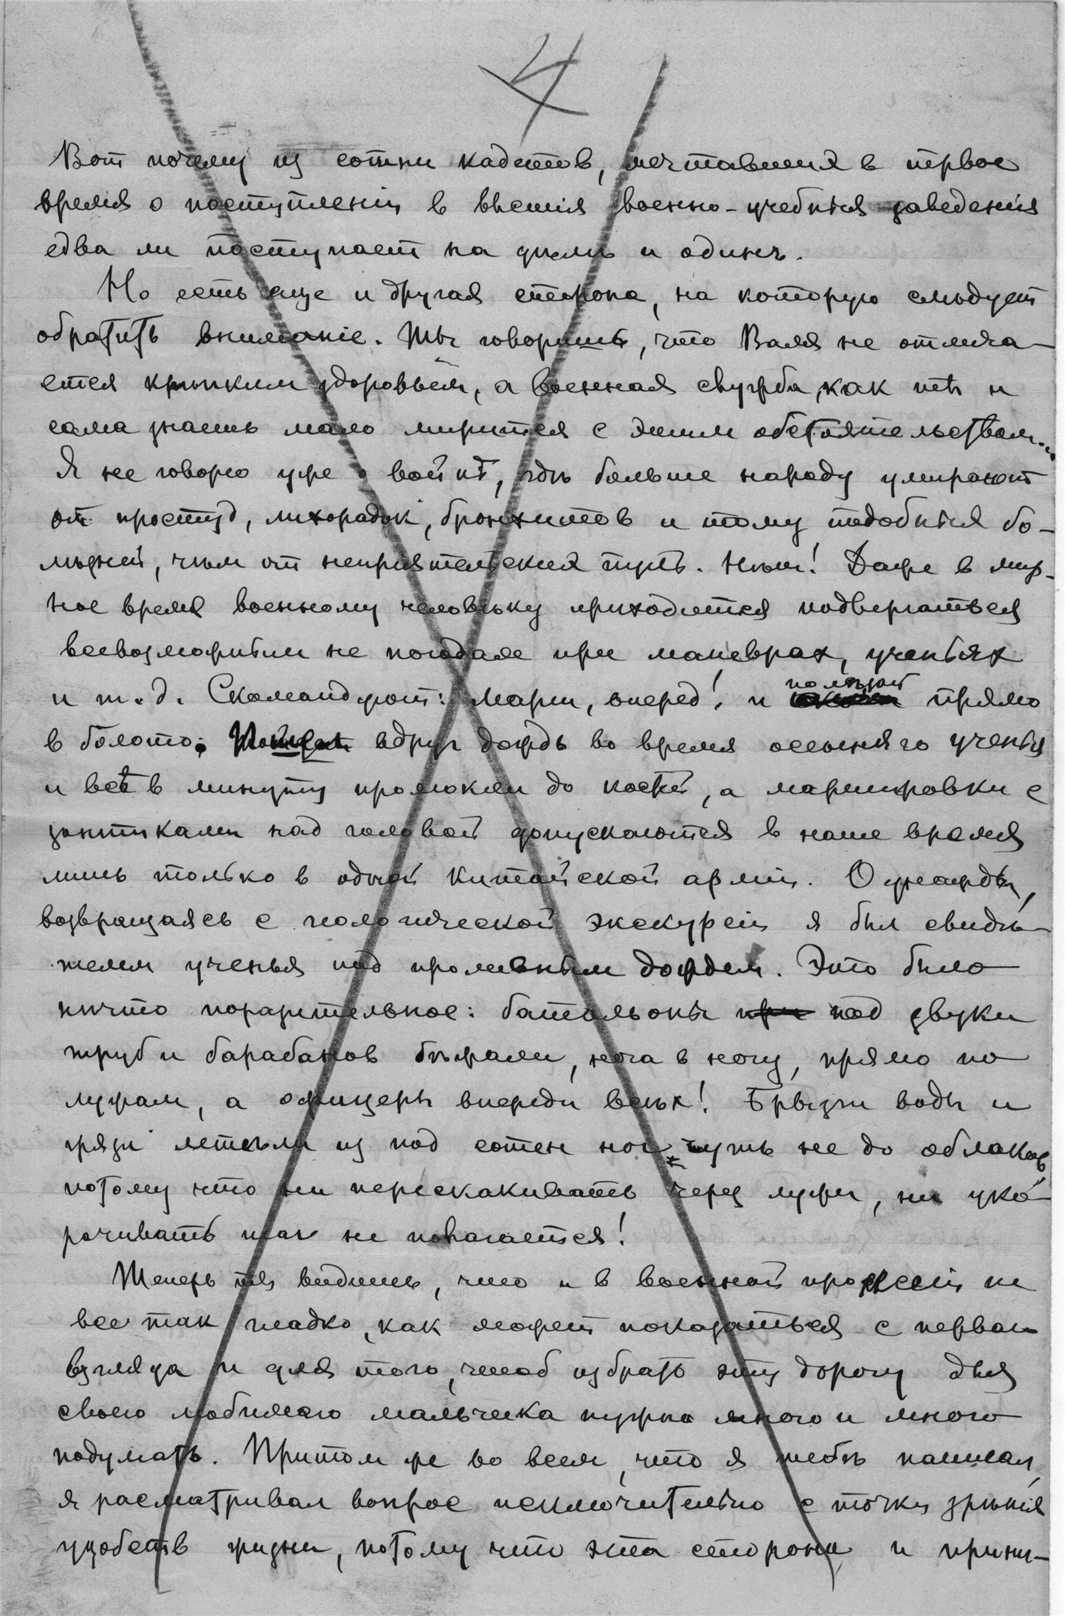 4
Вот почему из сотни кадетов, мечтавших в первое
время о поступленіи в высшія военно-учебныя заведенія
едва ли поступает на дѣлѣ и одинъ.
Но есть еще и другая сторона, на которую слѣдует
обратить вниманіе. Ты говоришь, что Валя не отлича-
ется крѣпким здоровьем, а военная служба, как ты и
сама знаешь мало мирится с этим обстоятельством...
Я не говорю уже о войнѣ, гдѣ больше народу умирают
от простуд, лихорадок, бронхитов и тому подобных бо-
лѣзней, чѣм от непріятельских пуль. Нѣт! Даже в мир-
ное время военному человѣку приходится подвергаться
всевозможным не погодам при маневрах, ученьях
и т. д. Скомандуют: марш, вперед! и ползют прямо
в болото. Пойдет вдруг дождь во время осенняго ученья
и всѣ в минуту промокли до костей, а маршировки с
зонтиками над головой допускаются в наше время
лишь только в одной Китайской арміи. Однажды,
возвращаясь с геологической экскурсіи я был свидѣ-
телем ученья под проливным дождем. Это было
нѣчто поразительное: батальоны при под звуки
труб и барабанов бѣжали, нога в ногу, прямо по
лужам, а офицеры впереди всѣх! Брызги воды и
грязи летѣли из под сотен ног чуть не до облаков,
потому что ни перескакивать через лужи, ни уко-
рачивать шаг не полагается!
Теперь ты видишь, что и в военной профессіи не
все так гладко, как может показаться с первого
взгляда и для того, чтоб избрать эту дорогу для
своего любимаго мальчика нужно много и много
подумать. Притом же во всем, что я тебѣ написал,
я расматривал вопрос исключительно с точки зрѣнія
удобств жизни, потому что эта сторона и прини-